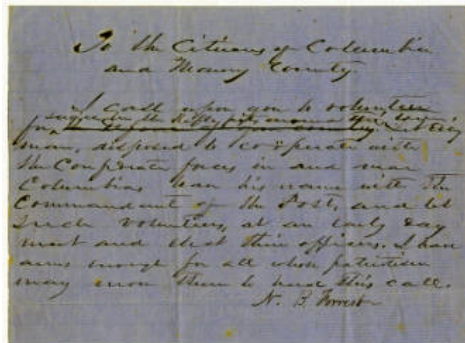 To the Citizens of Columbia
and Maury County.
I call upon you to volunteer
for let every
man, disposed to co-operate with
the Confederate forces in and near
Columbia leave his name with the
Commandant of the Post, and let
such volunteers, at an early day
meet and elect their officers. I have
arms enough for all whose patriotism
may move them to heed this call.
N. B. Forrest